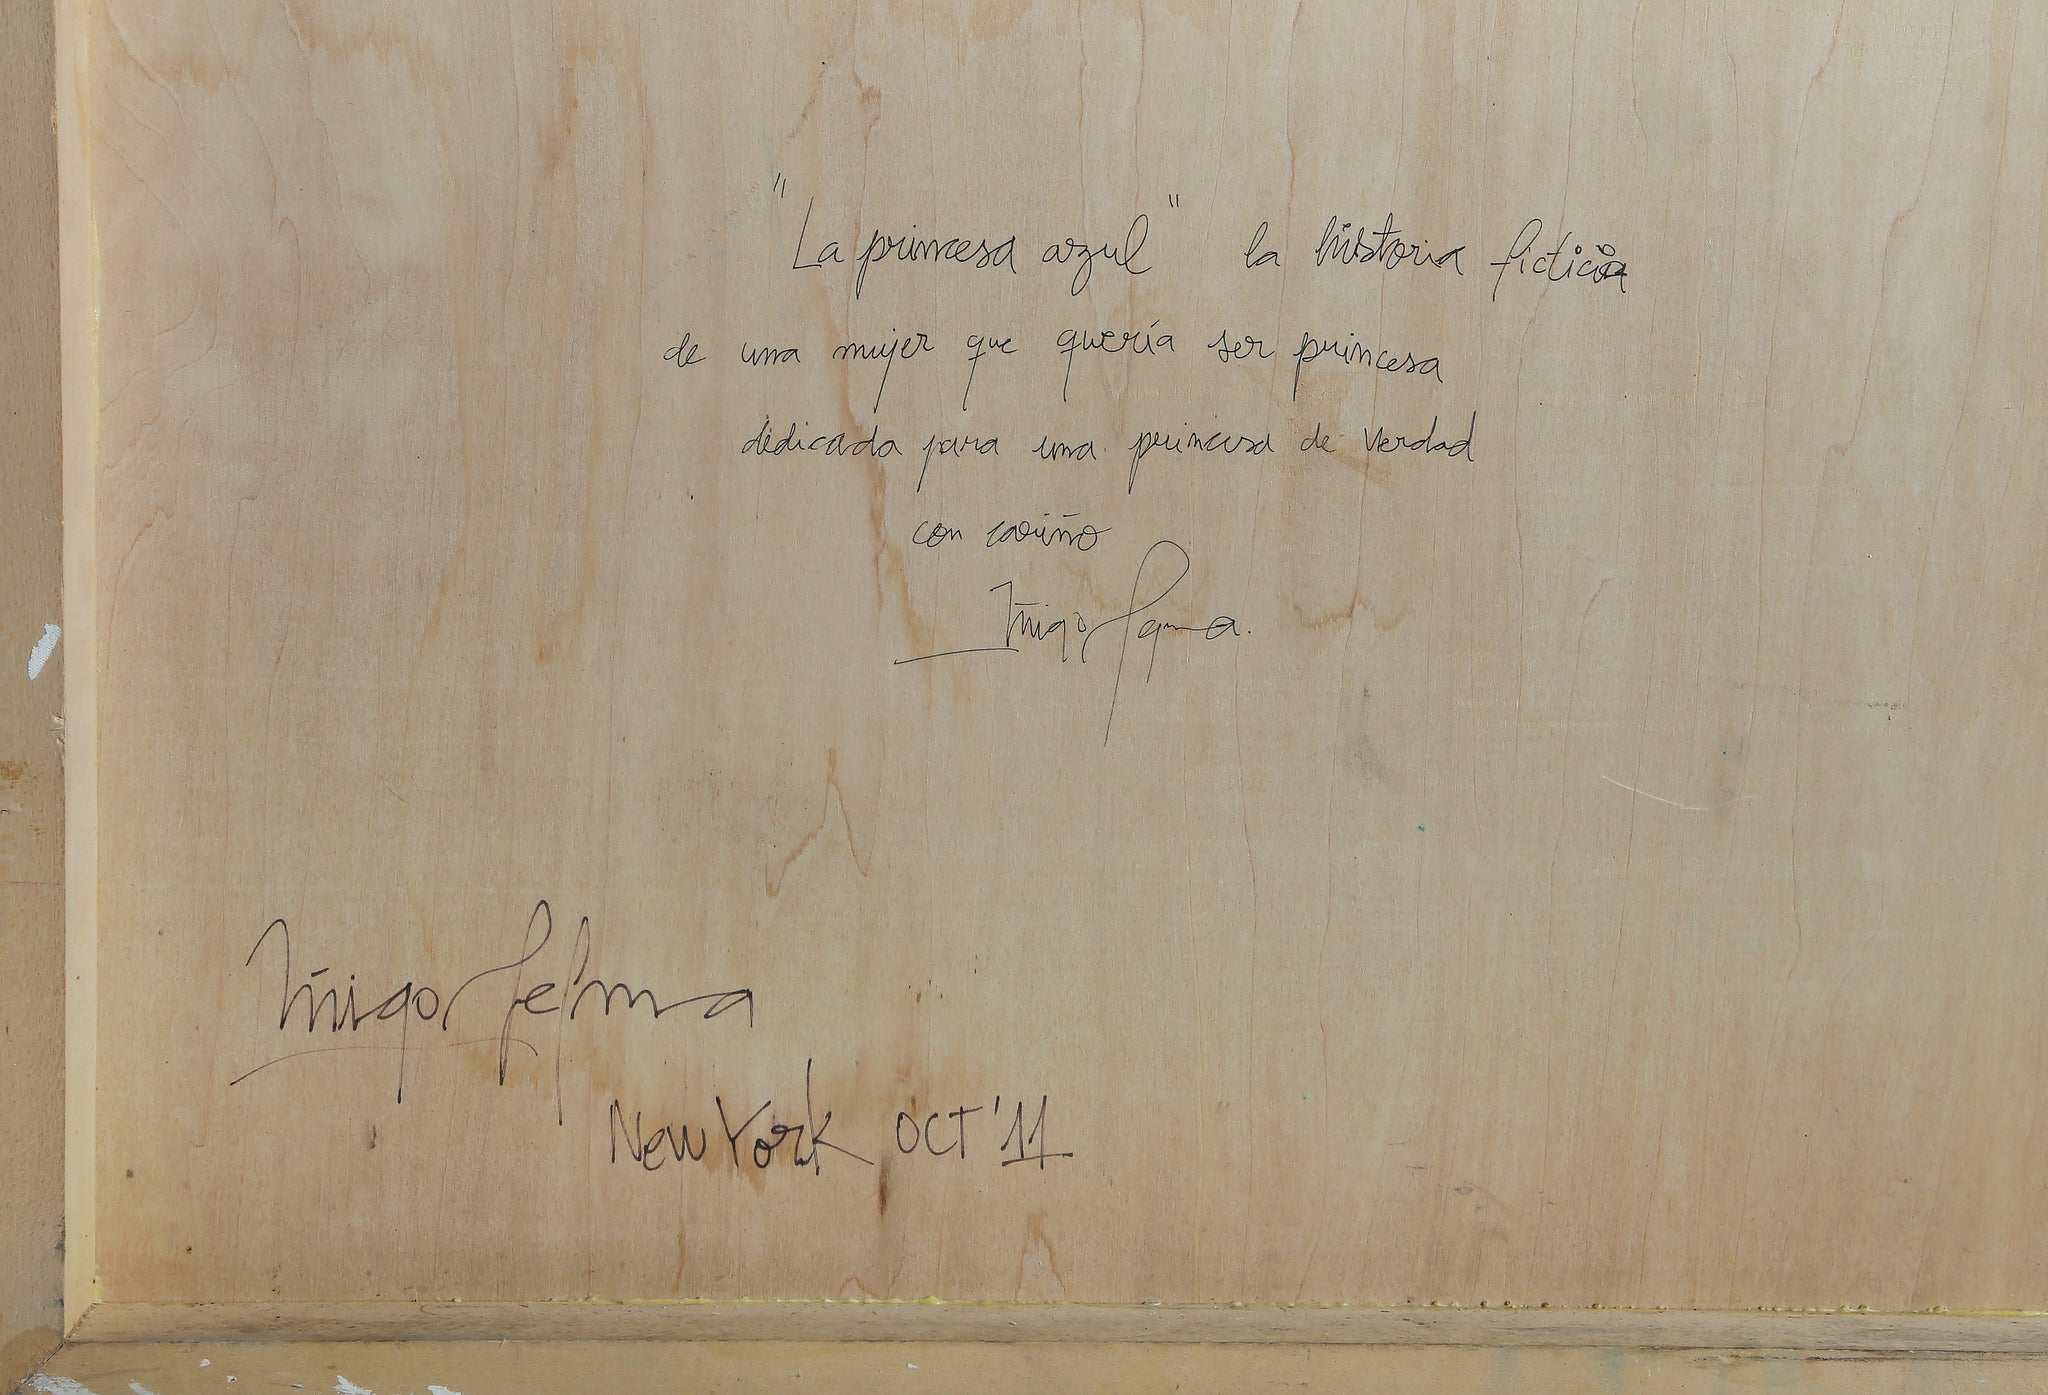 "La princesa azul" la historia ficticia
de una mujer que quería ser princesa
dedicada para una princesa de verdad
con cariño
Iñigo
Iñigo
New York OCT '11